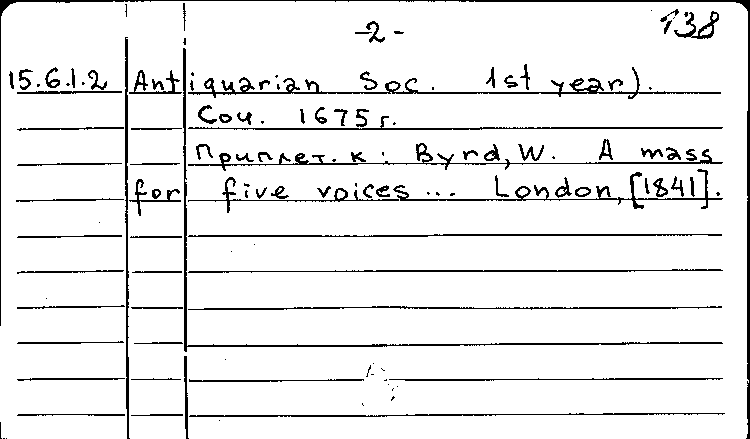 -2- 138
15.6.1.2 Antiquarian Soc. 1st year).
Соч. 1675 г.
Приплет. к: Byrd, W. A mass
for five voices ... London, [1841].